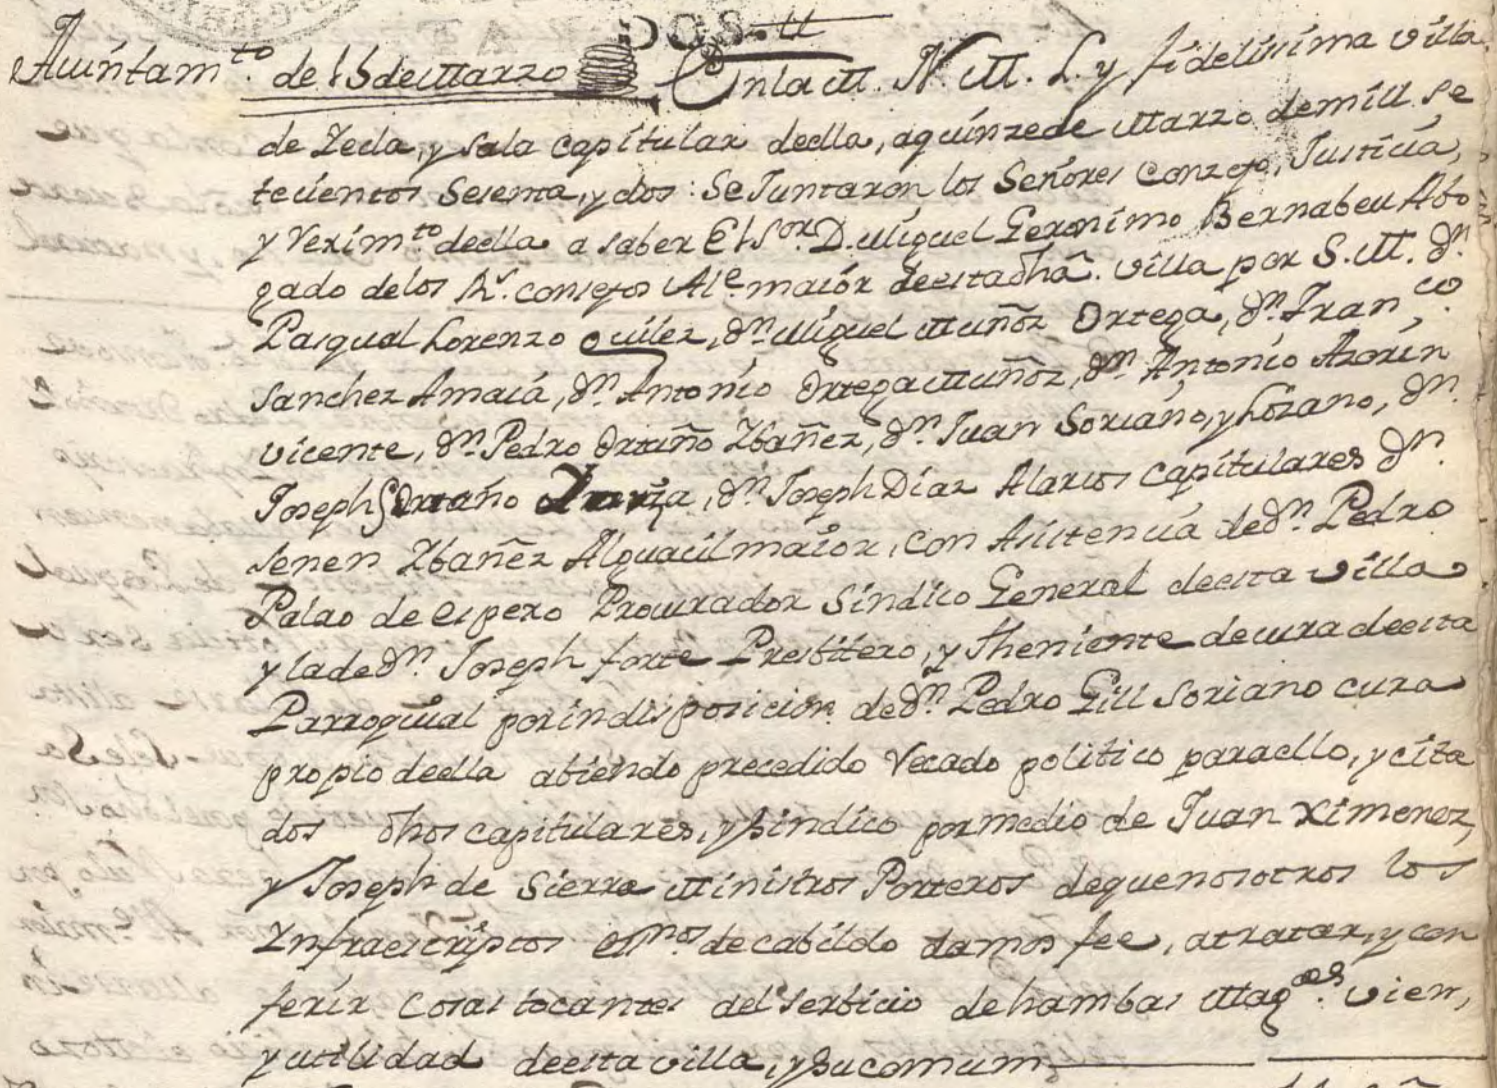 DOS.
Auintam.to de 15 de Marzo En la M. N. M. L. y fidelisima villa
de Yecla, y sala capitular de ella, a quinze de Marzo de mill se
tecientos Sesenta, y dos: Se Juntaron los Señores Conzejo, Justicia,
y Rexim.to de ella a saber El S.or D. Miguel Geronimo Bernabeu Abo
gado de los R.s consejos Al.e maior de esta dha. villa por S. M. d.n
Pasqual Lorenzo Quilez, d.n Miguel Muñoz Ortega, d.n Fran.co
Sanchez Amaia, d.n Antonio Ortega Muñoz, d.n Antonio Azorin
vicente, d.n Pedro Ortuño Ybañez, d.n Juan Soriano, y Lozano, d.n
Joseph Ortuño, d.n Joseph Diaz Alarcos Capitulares d.n
Senen Ybañez Alguacil maior, con Asistencia de d.n Pedro
Palao de espero Procurador Sindico General de esta villa
y la de d.n Joseph forte Presbitero, y Theniente de cura de esta
Parroquial por indisposicion de d.n Pedro Gill Soriano cura
propio de ella abiendo precedido Recado politico para ello, y cita
dos dhos capitulares, y Sindico por medio de Juan Ximenez,
y Joseph de Sierra Ministros Porteros de que nosotros los
Ynfraescriptos es.nos de cabildo damos fee, a tratar, y con
ferir Cosas tocantes del Serbicio de hambas Mag.des vien,
y utilidad de esta villa, y Su comun